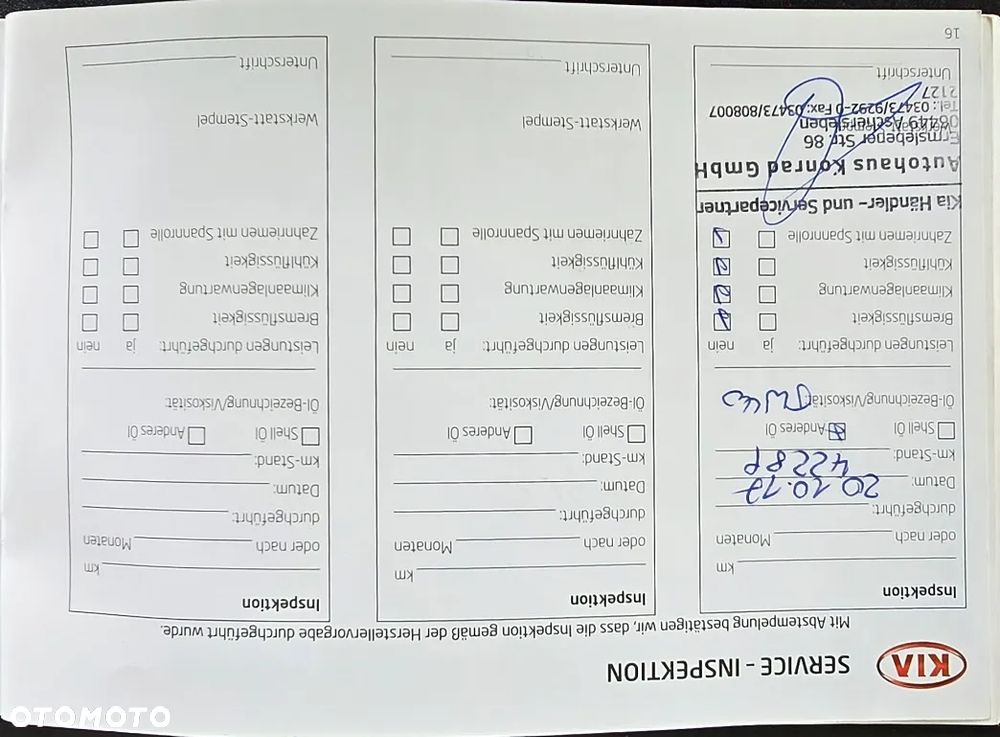 KIA
SERVICE - INSPEKTION
Mit Abstempelung bestätigen wir, dass die Inspektion gemäß der Herstellervorgabe durchgeführt wurde.
Inspektion
km
oder nach Monaten
durchgeführt:
Datum: 20.10.17
km-Stand:
Shell Öl Anderes Öl
Öl-Bezeichnung/Viskosität:
Leistungen durchgeführt: ja nein
Bremsflüssigkeit
Klimaanlagenwartung
Kühlflüssigkeit
Zahnriemen mit Spannrolle
Kia Händler- und Servicepartner
Autohaus Konrad GmbH
Ermslebener Str. 86
06449 Aschersleben
Tel.: 03473/9292-0 Fax: 03473/808007
2127
Unterschrift
Inspektion
km
oder nach Monaten
durchgeführt:
Datum:
km-Stand:
Shell Öl Anderes Öl
Öl-Bezeichnung/Viskosität:
Leistungen durchgeführt: ja nein
Bremsflüssigkeit
Klimaanlagenwartung
Kühlflüssigkeit
Zahnriemen mit Spannrolle
Werkstatt-Stempel
Unterschrift
Inspektion
km
oder nach Monaten
durchgeführt:
Datum:
km-Stand:
Shell Öl Anderes Öl
Öl-Bezeichnung/Viskosität:
Leistungen durchgeführt: ja nein
Bremsflüssigkeit
Klimaanlagenwartung
Kühlflüssigkeit
Zahnriemen mit Spannrolle
Werkstatt-Stempel
Unterschrift
16
OTOMOTO